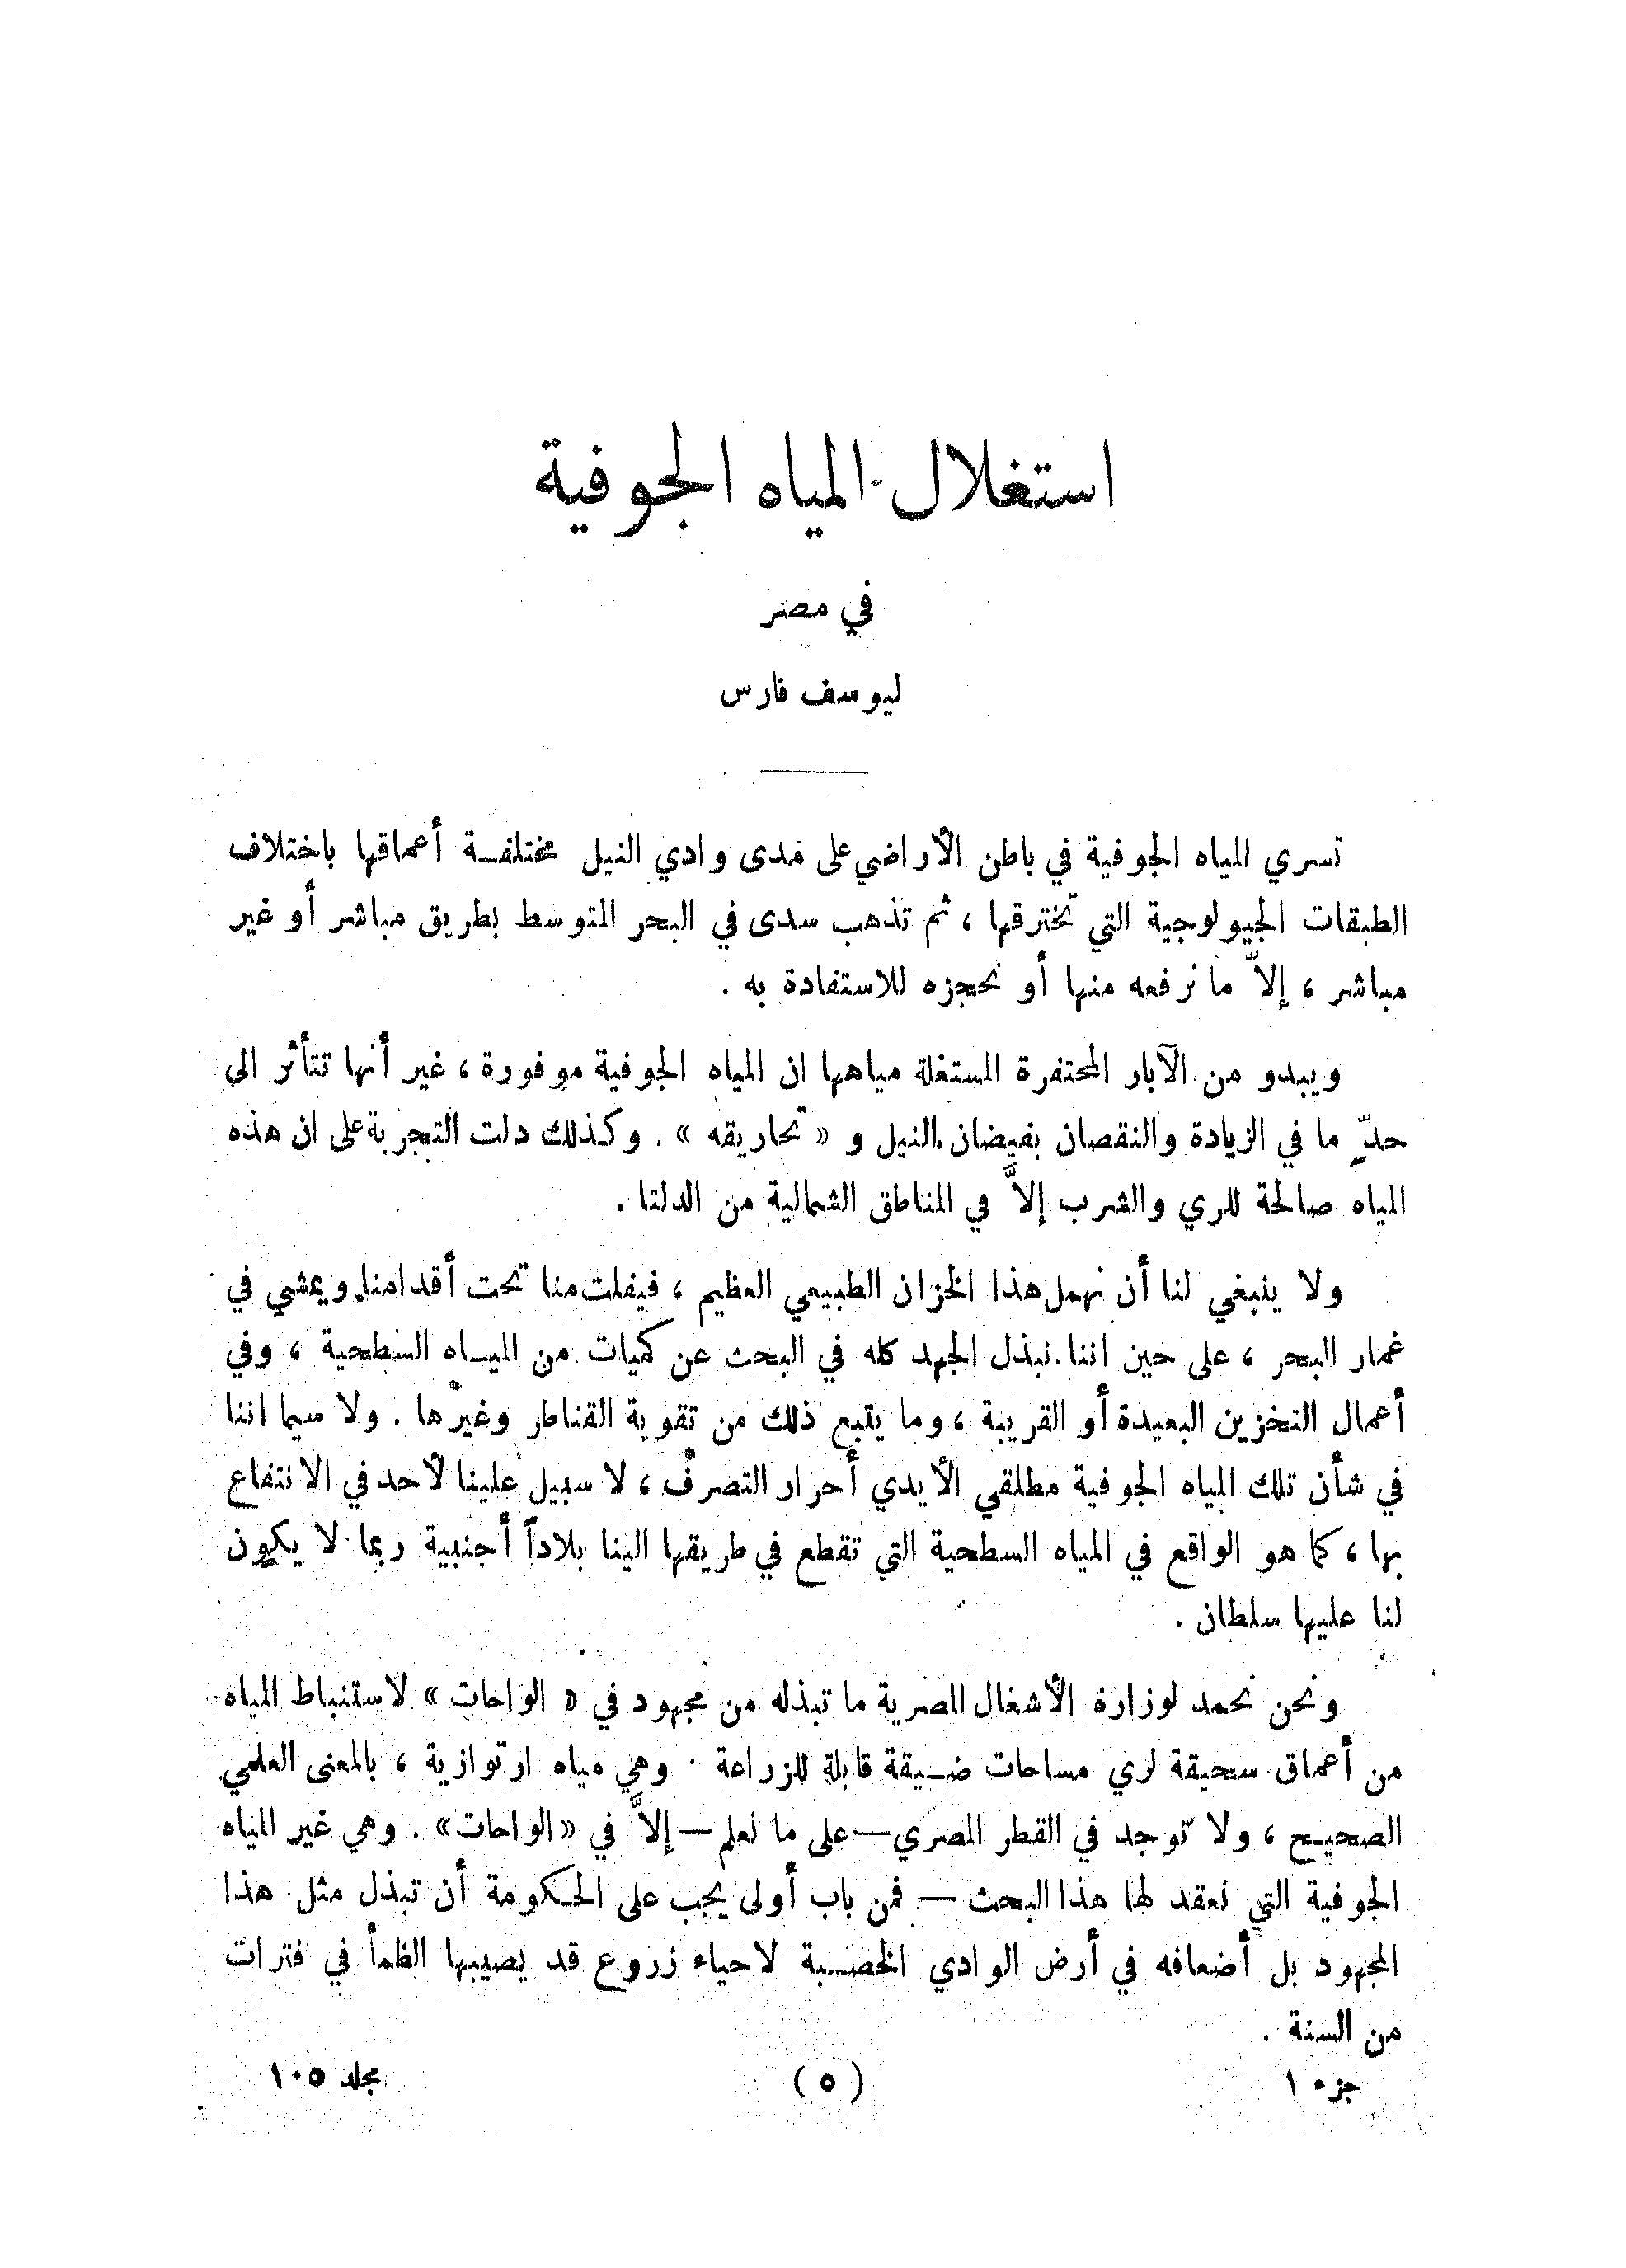 استغلال المياه الجوفية
في مصر
ليوسف فارس
تسري المياه الجوفية في باطن الأراضي على مدى وادي النيل مختلفة أعماقها باختلاف
الطبقات الجيولوجية التي تخترقها ، ثم تذهب سدى في البحر المتوسط بطريق مباشر أو غير
مباشر ، إلاّ ما نرفعه منها أو نحجزه للاستفادة به .
ويبدو من الآبار المحتفرة المستغلة مياهها ان المياه الجوفية موفورة ، غير أنها تتأثر الى
حدٍّ ما في الزيادة والنقصان بفيضان النيل و « تحاريقه » . وكذلك دلت التجربة على ان هذه
المياه صالحة للري والشرب إلاَّ في المناطق الشمالية من الدلتا .
ولا ينبغي لنا أن نهمل هذا الخزان الطبيعي العظيم ، فيفلت منا تحت أقدامنا ويمشي في
غمار البحر ، على حين اننا نبذل الجهد كله في البحث عن كميات من المياه السطحية ، وفي
أعمال التخزين البعيدة أو القريبة ، وما يتبع ذلك من تقوية القناطر وغيرها . ولا سيما اننا
في شأن تلك المياه الجوفية مطلقي الأيدي أحرار التصرف ، لا سبيل علينا لأحد في الانتفاع
بها ، كما هو الواقع في المياه السطحية التي تقطع في طريقها الينا بلاداً أجنبية ربما لا يكون
لنا عليها سلطان .
ونحن نحمد لوزارة الأشغال المصرية ما تبذله من مجهود في « الواحات » لاستنباط المياه
من أعماق سحيقة لري مساحات ضيقة قابلة للزراعة . وهي مياه ارتوازية ، بالمعنى العلمي
الصحيح ، ولا توجد في القطر المصري — على ما نعلم — إلاَّ في «الواحات» . وهي غير المياه
الجوفية التي نعقد لها هذا البحث — فمن باب أولى يجب على الحكومة أن تبذل مثل هذا
المجهود بل أضعافه في أرض الوادي الخصبة لاحياء زروع قد يصيبها الظمأ في فترات
من السنة .
جزء ١ (٥) مجلد ١٠٥